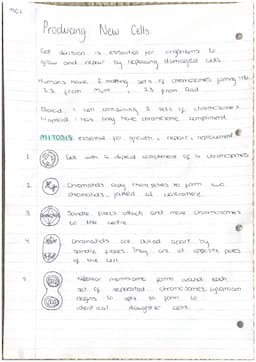 MC1
Producing New Cells
Cell division is essential for organisms to
grow and repair by replacing damaged cells
Humans have 2 mating sets of chromosomes
23 from Mum, 23 from Dad
Diploid: cell containing 2 sets of chromosomes
Haploid: has only have chromosome compliment
MITOSIS: essential for growth, repair, replacement
1 Cell with a diploid compliment of 4 chromosomes
2 Chromatids copy themselves to form two
chromatids, joined at centromere
3 Spindle fibres attach and move chromosomes
to the centre
4 Chromatids are pulled apart by
spindle fibres. They are at opposite poles
of the cell.
5 Nuclear membrane form around each
set of separated chromosomes, cytoplasm
begins to split to form 2
identical daughter cells.